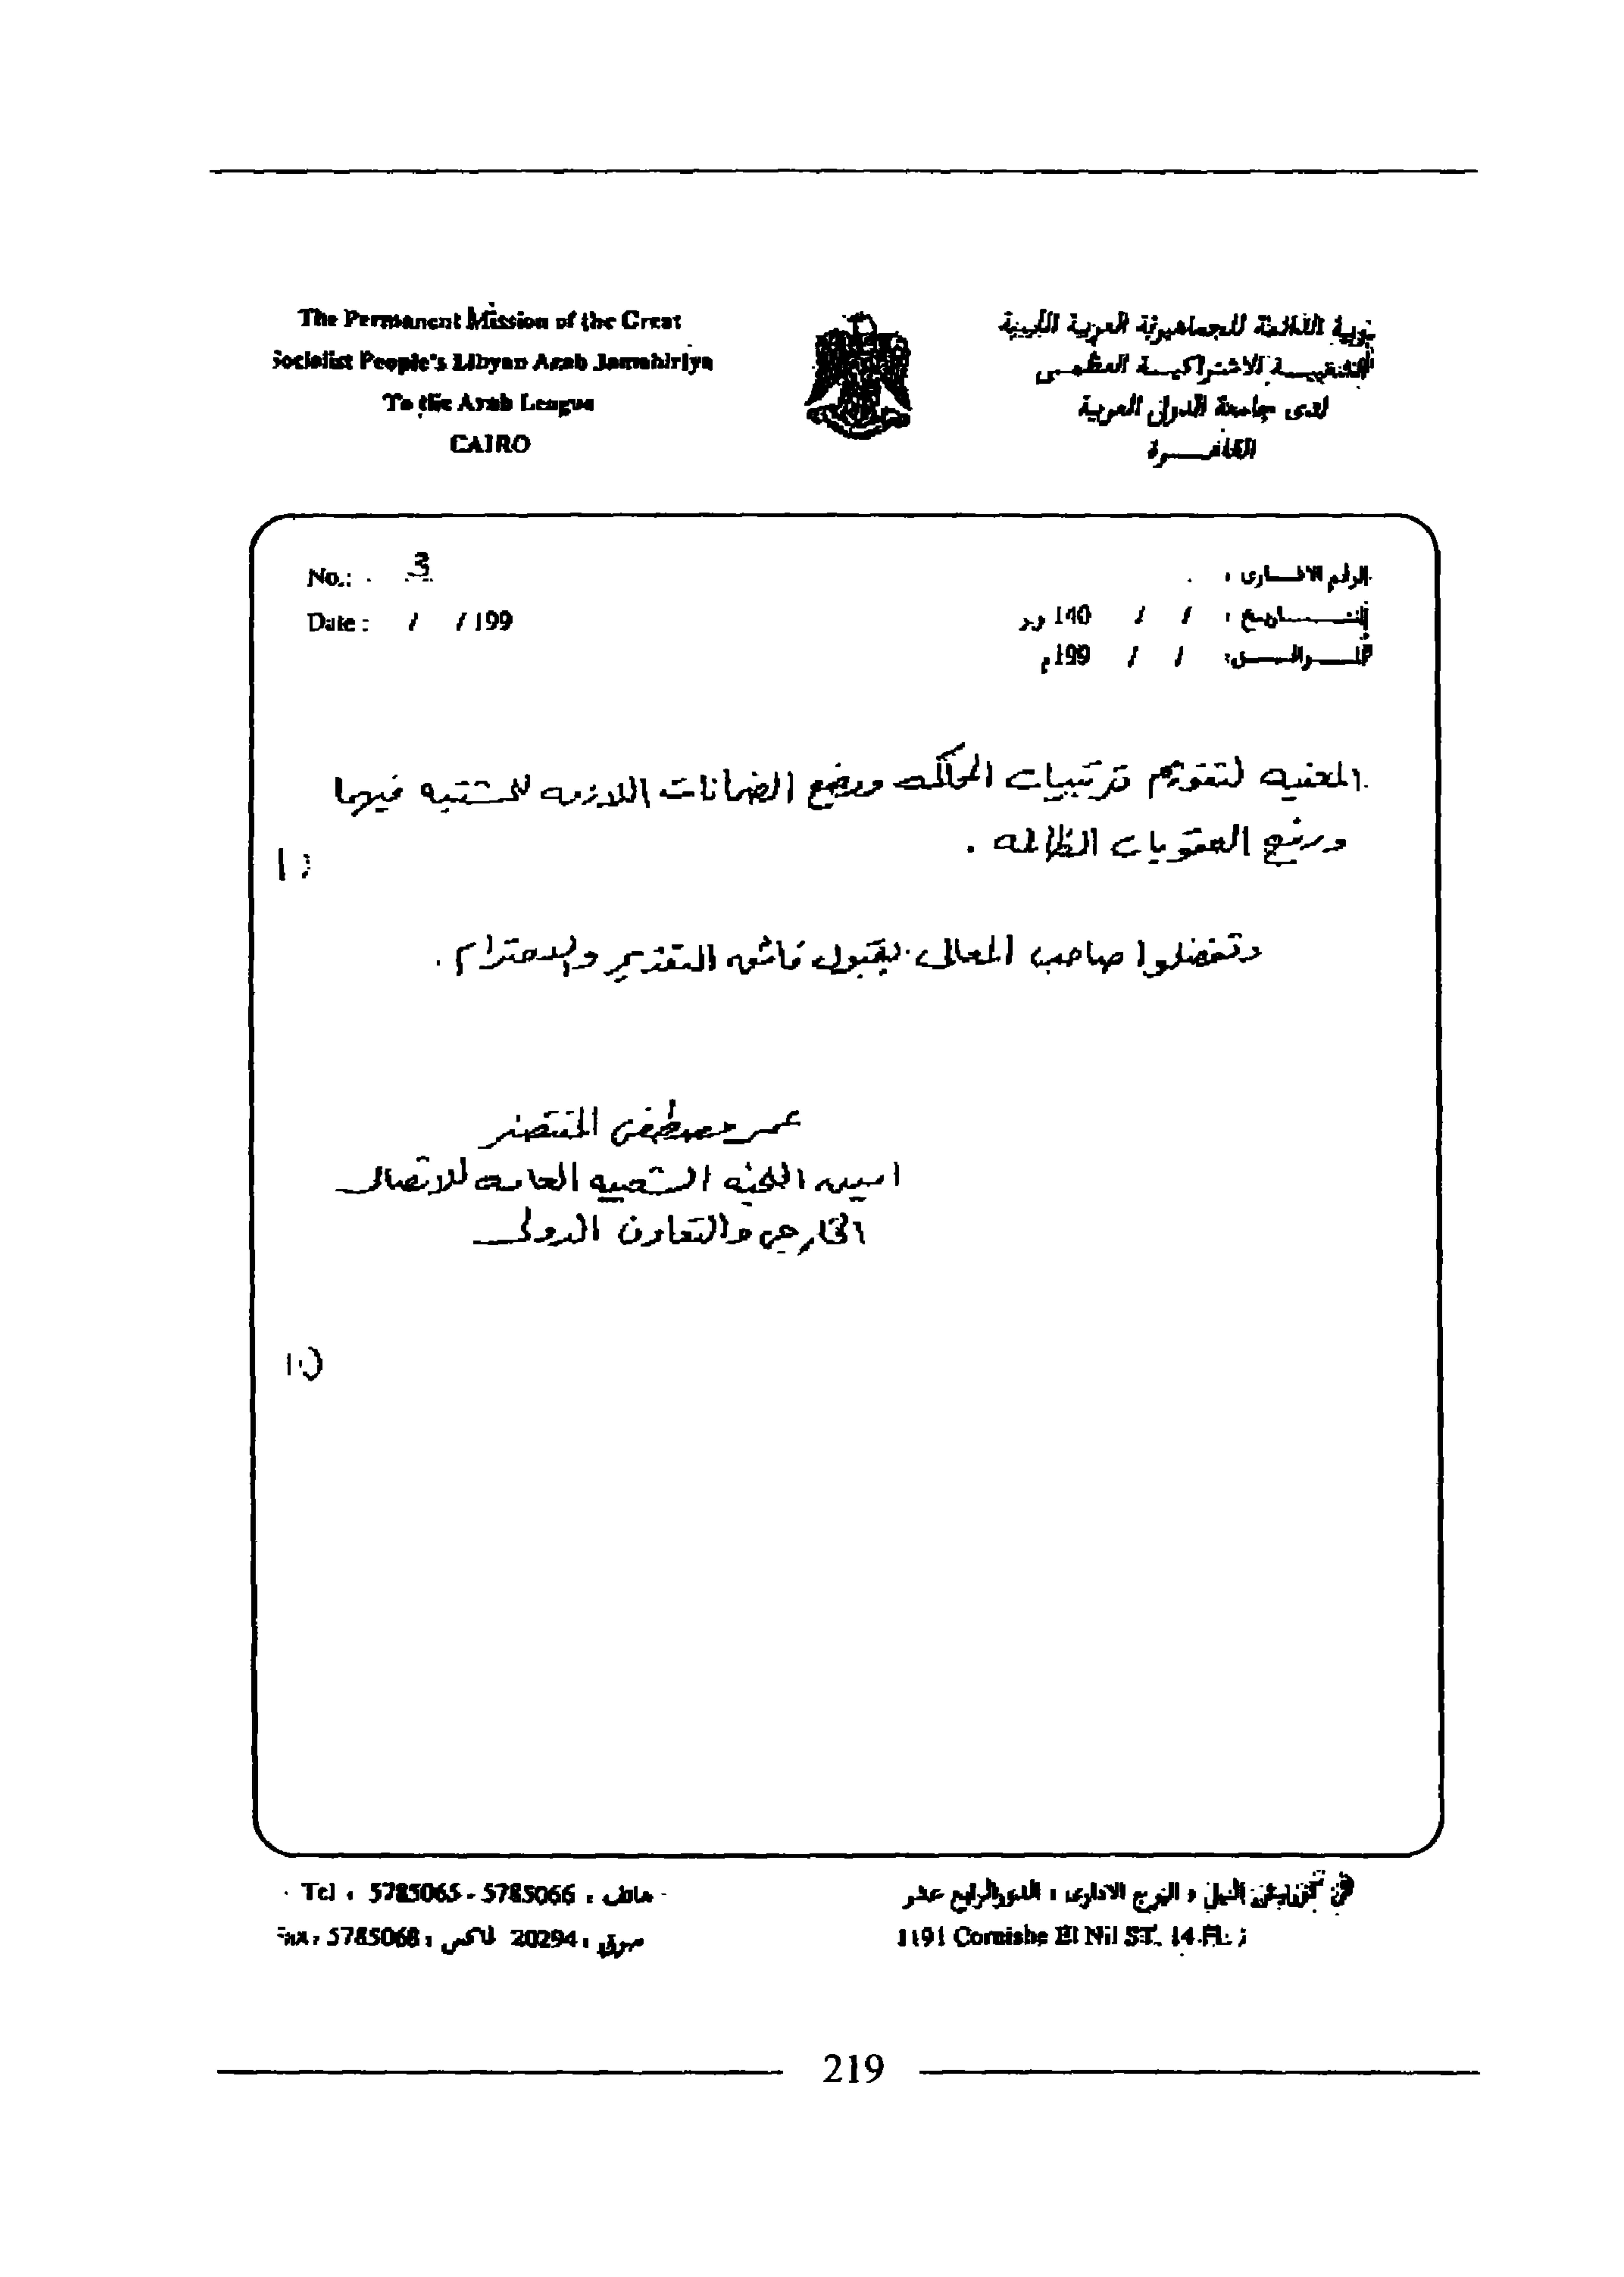 The Permanent Mission of the Great
Socialist People's Libyan Arab Jamahiriya
To the Arab League
CAIRO
الدائمة للجماهيرية العربية الليبية
الشعبيـــة الاشتراكيـــة العظمـــى
لدى جامعة الدول العربية
القاهـــرة
No.: 3
Date : / / 199
الرقم الاشـــارى :
التـــــاريخ : / / 140 و.ر
المـــوافـــق: / / 199م
المعنيه لتقويم ترتيبات المحاكمه ووضع الضمانات اللازمه للمشتبه فيهما
ورفع العقوبات الظالمه .
وتفضلوا صاحب المعالى بقبول فائق التقدير والاحترام .
عمر مصطفى المنتصر
امين اللجنه الشعبيه العامه للاتصال
الخارجى والتعاون الدولى
Tel : 5785065 - 5785066 : هاتف
Fax : 5785068 : فاكس 20294 : برقى
كورنيش النيل ، البرج الادارى ، الدور الرابع عشر
1191 Cornishe El Nil ST. 14 FL
219